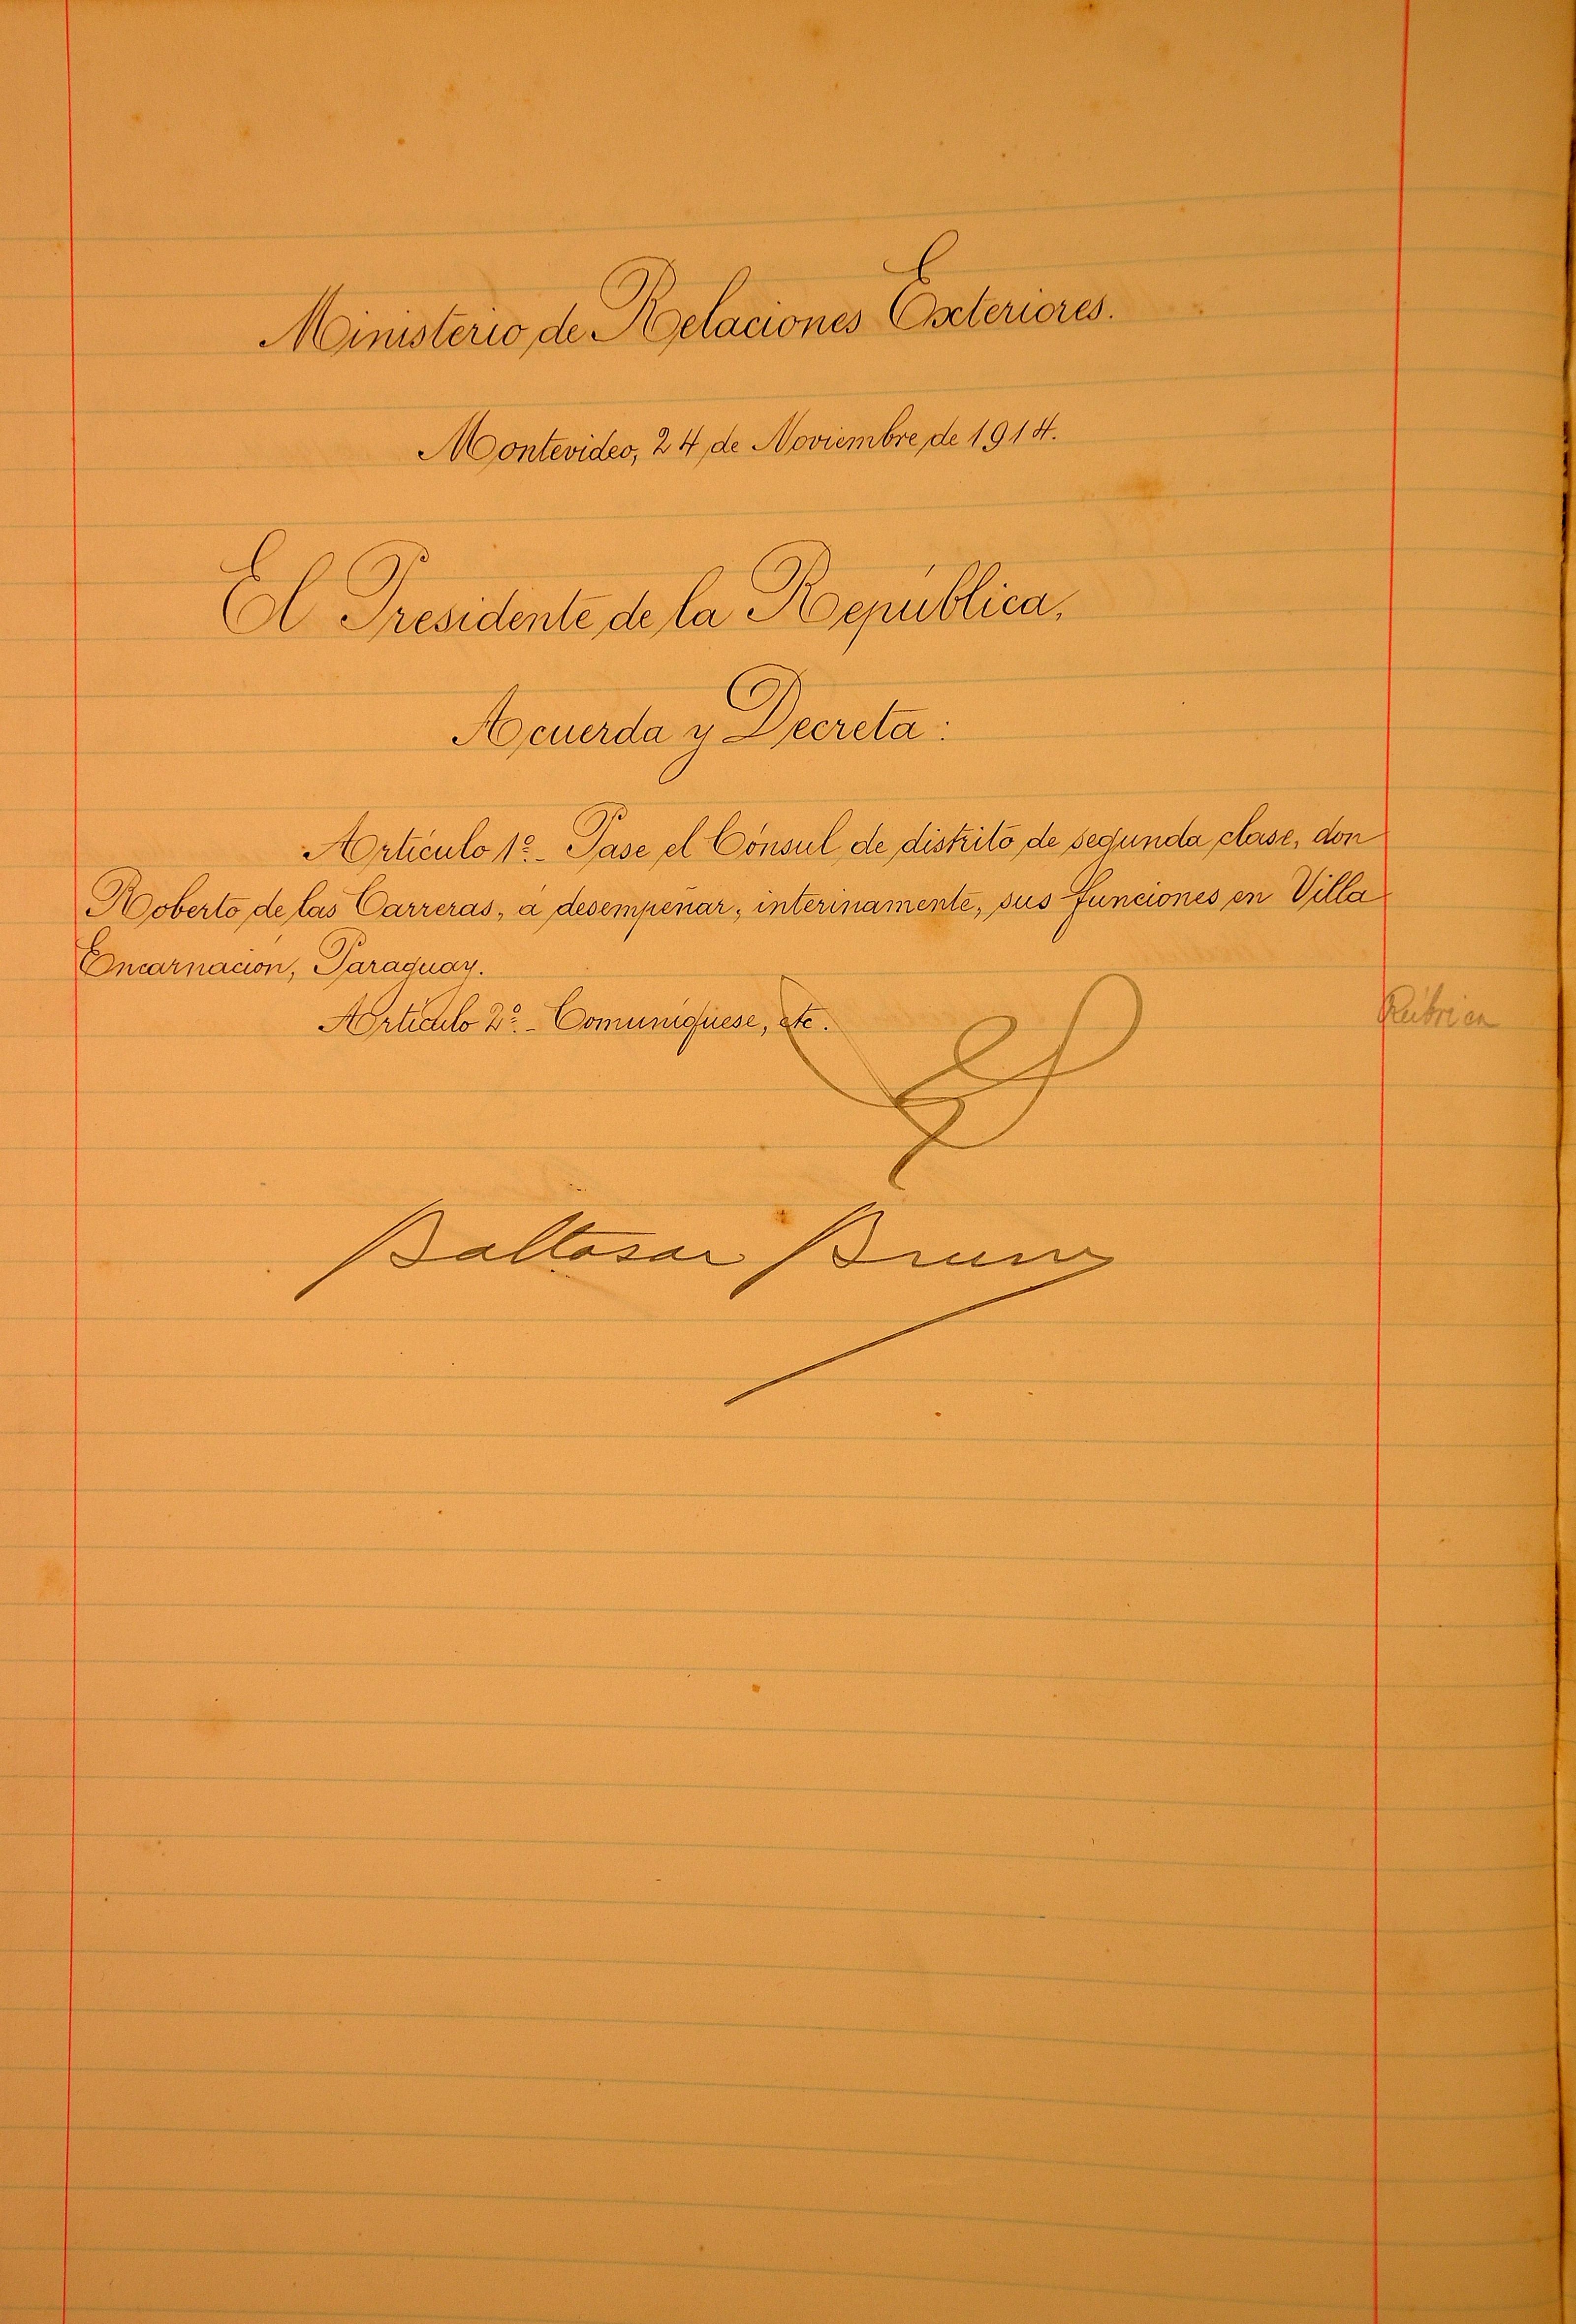 Ministerio de Relaciones Exteriores.
Montevideo, 24 de Noviembre de 1914.
El Presidente de la República,
Acuerda y Decreta:
Artículo 1º_ Pase el Cónsul de distrito de segunda clase, don
Roberto de las Carreras, á desempeñar, interinamente, sus funciones en Villa
Encarnación, Paraguay.
Artículo 2º_ Comuníquese, etc.
Rúbrica
Baltasar Brum